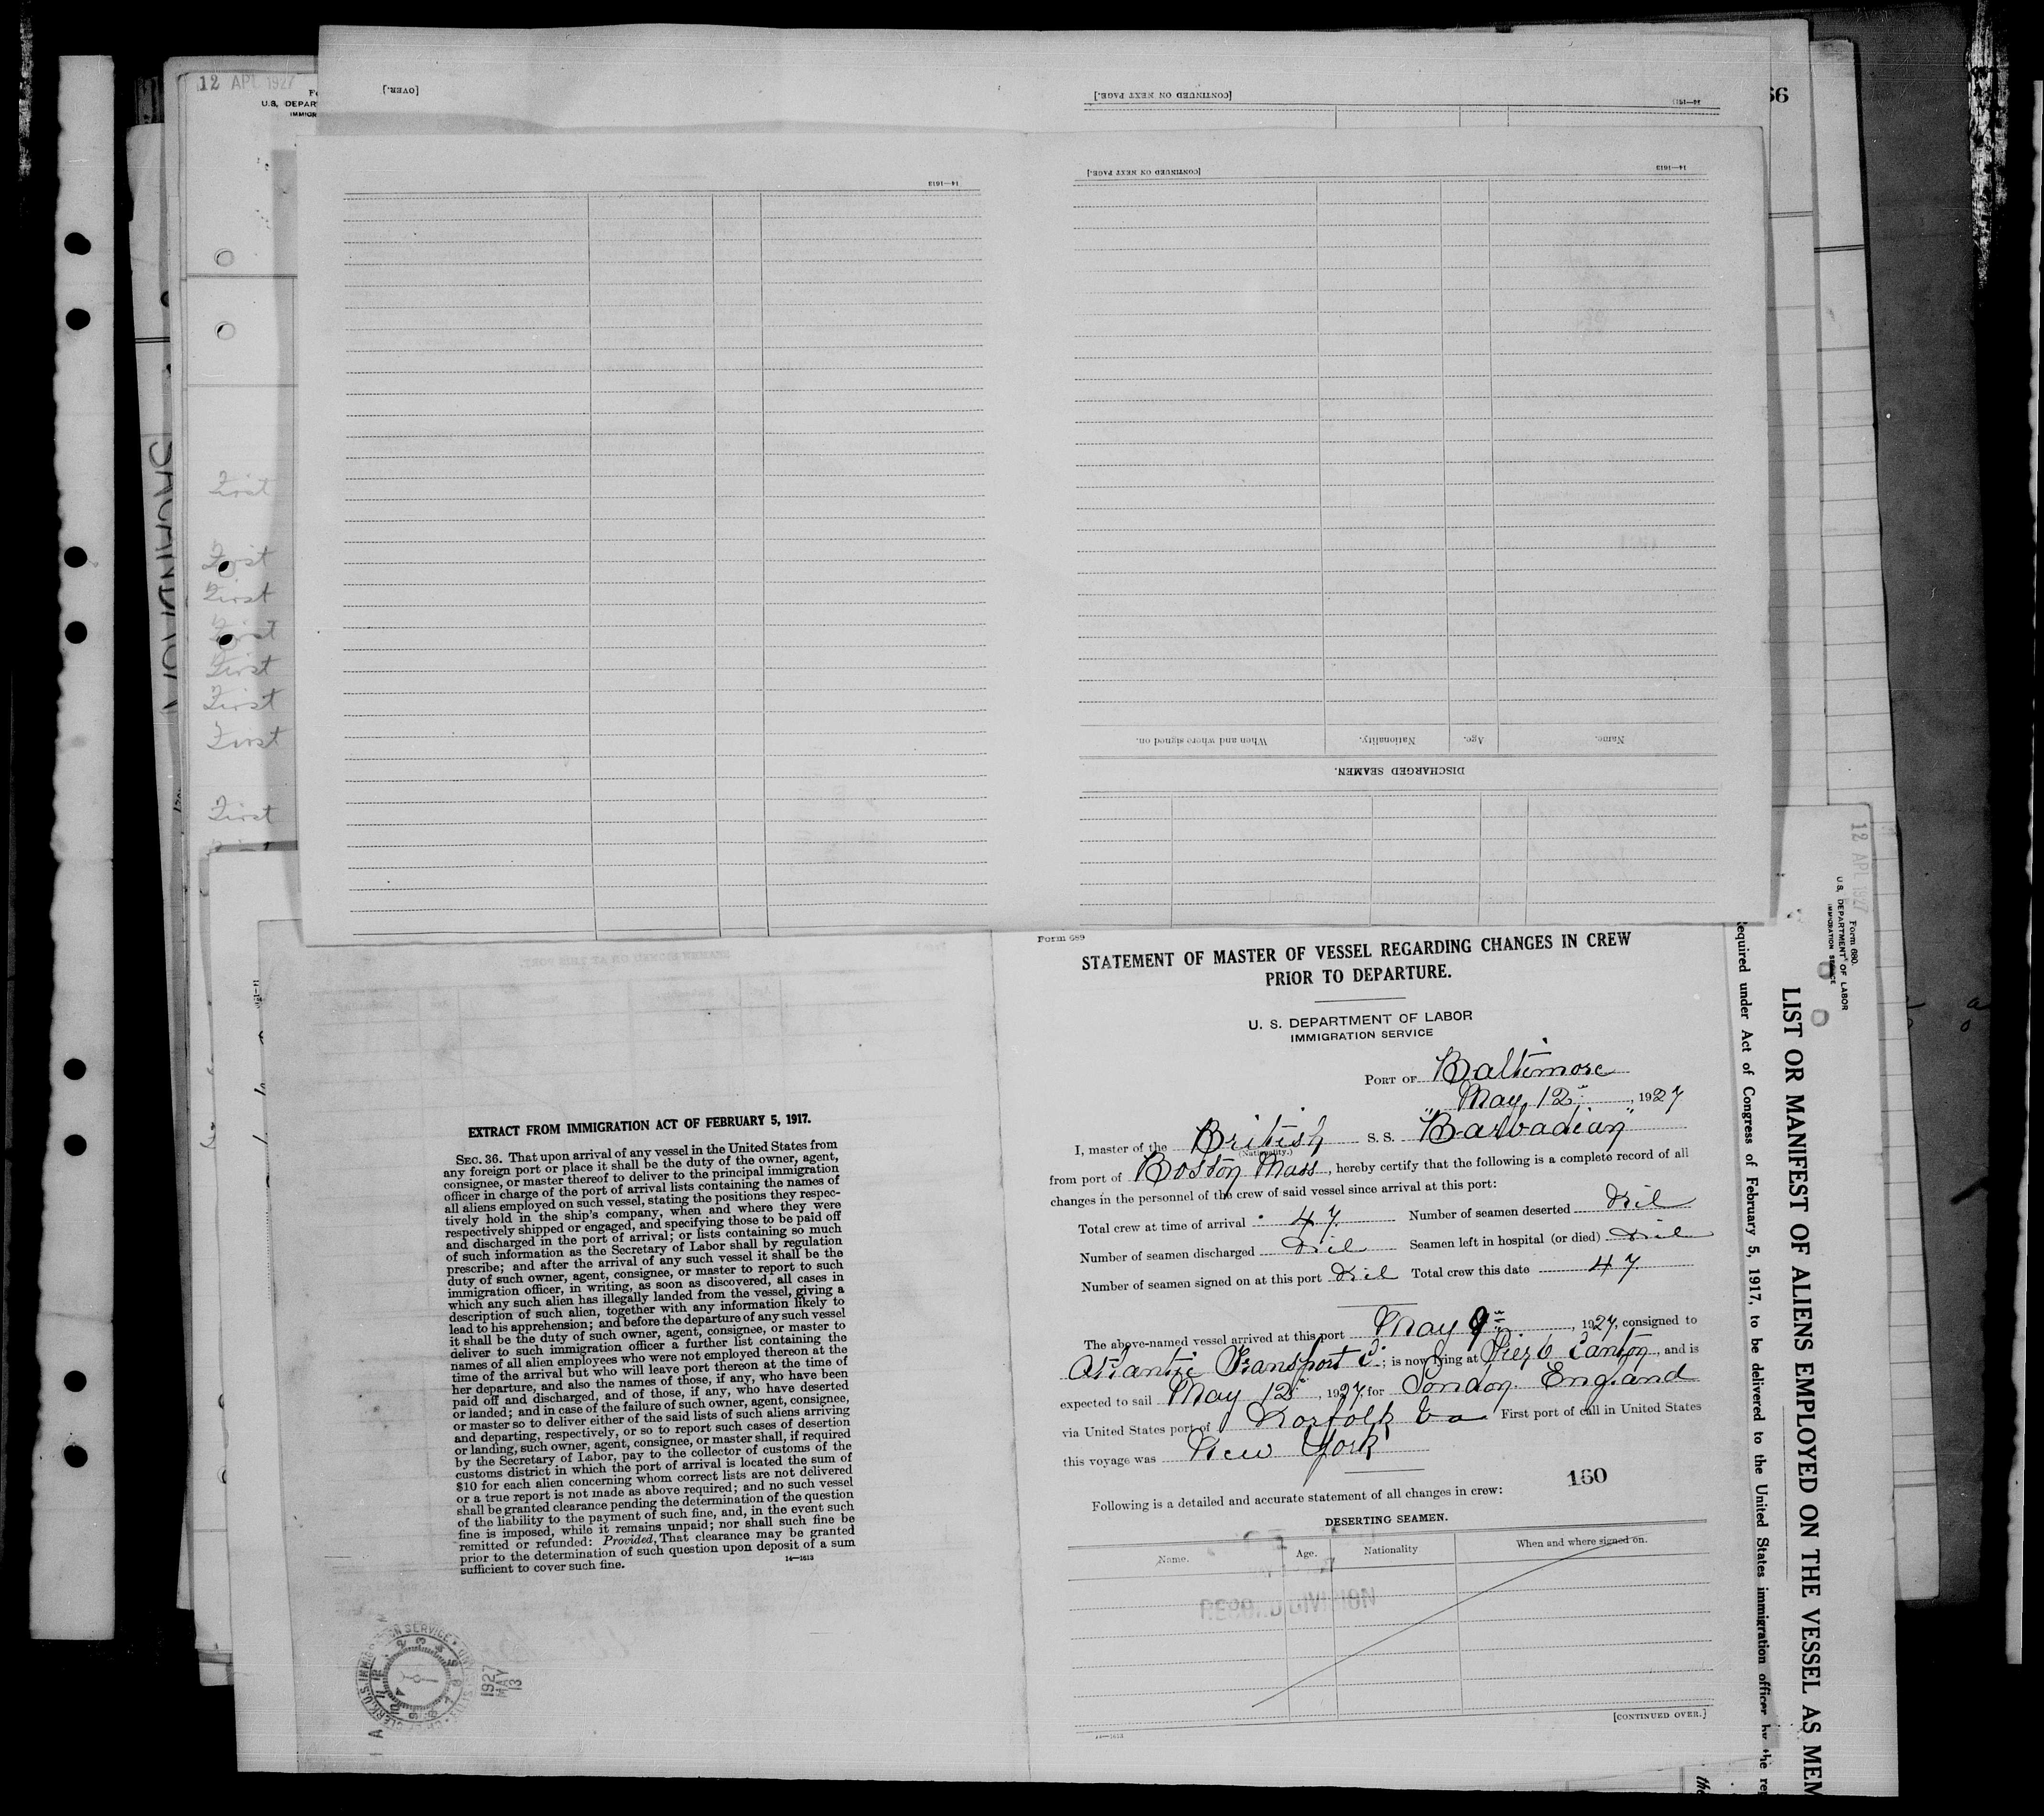 12 APL 1927
U.S. DEPAR
IMMIGR
[OVER.]
[CONTINUED ON NEXT PAGE.]
66
14—1613
[CONTINUED ON NEXT PAGE.]
14—1613
First
First
First
First
First
First
First
First
When and where signed on.
Nationality.
Age.
Name.
DISCHARGED SEAMEN.
Form 689
STATEMENT OF MASTER OF VESSEL REGARDING CHANGES IN CREW
PRIOR TO DEPARTURE.
U. S. DEPARTMENT OF LABOR
IMMIGRATION SERVICE
PORT OF Baltimore
May 12, 1927
I, master of the British S. S. "Barbadian"
(Nationality.)
from port of Boston Mass, hereby certify that the following is a complete record of all
changes in the personnel of the crew of said vessel since arrival at this port:
Total crew at time of arrival 47 Number of seamen deserted Nil
Number of seamen discharged Nil Seamen left in hospital (or died) Nil
Number of seamen signed on at this port Nil Total crew this date 47
The above-named vessel arrived at this port May 9th, 1927, consigned to
Atlantic Transport C°; is now lying at Pier 6 Canton, and is
expected to sail May 12, 1927, for London England
via United States port of Norfolk Va First port of call in United States
this voyage was New York
160
Following is a detailed and accurate statement of all changes in crew:
DESERTING SEAMEN.
Name. Age. Nationality When and where signed on.
RECORD DIVISION
[CONTINUED OVER.]
14—1613
EXTRACT FROM IMMIGRATION ACT OF FEBRUARY 5, 1917.
SEC. 36. That upon arrival of any vessel in the United States from
any foreign port or place it shall be the duty of the owner, agent,
consignee, or master thereof to deliver to the principal immigration
officer in charge of the port of arrival lists containing the names of
all aliens employed on such vessel, stating the positions they respec-
tively hold in the ship's company, when and where they were
respectively shipped or engaged, and specifying those to be paid off
and discharged in the port of arrival; or lists containing so much
of such information as the Secretary of Labor shall by regulation
prescribe; and after the arrival of any such vessel it shall be the
duty of such owner, agent, consignee, or master to report to such
immigration officer, in writing, as soon as discovered, all cases in
which any such alien has illegally landed from the vessel, giving a
description of such alien, together with any information likely to
lead to his apprehension; and before the departure of any such vessel
it shall be the duty of such owner, agent, consignee, or master to
deliver to such immigration officer a further list containing the
names of all alien employees who were not employed thereon at the
time of the arrival but who will leave port thereon at the time of
her departure, and also the names of those, if any, who have been
paid off and discharged, and of those, if any, who have deserted
or landed; and in case of the failure of such owner, agent, consignee,
or master so to deliver either of the said lists of such aliens arriving
and departing, respectively, or so to report such cases of desertion
or landing, such owner, agent, consignee, or master shall, if required
by the Secretary of Labor, pay to the collector of customs of the
customs district in which the port of arrival is located the sum of
$10 for each alien concerning whom correct lists are not delivered
or a true report is not made as above required; and no such vessel
shall be granted clearance pending the determination of the question
of the liability to the payment of such fine, and, in the event such
fine is imposed, while it remains unpaid; nor shall such fine be
remitted or refunded: Provided, That clearance may be granted
prior to the determination of such question upon deposit of a sum
sufficient to cover such fine.
14—1613
1927
MAY
13
12 APL 1927
Form 680.
U.S. DEPARTMENT OF LABOR
IMMIGRATION SERVICE
LIST OR MANIFEST OF ALIENS EMPLOYED ON THE VESSEL AS MEM
equired under Act of Congress of February 5, 1917, to be delivered to the United States immigration officer by the rep